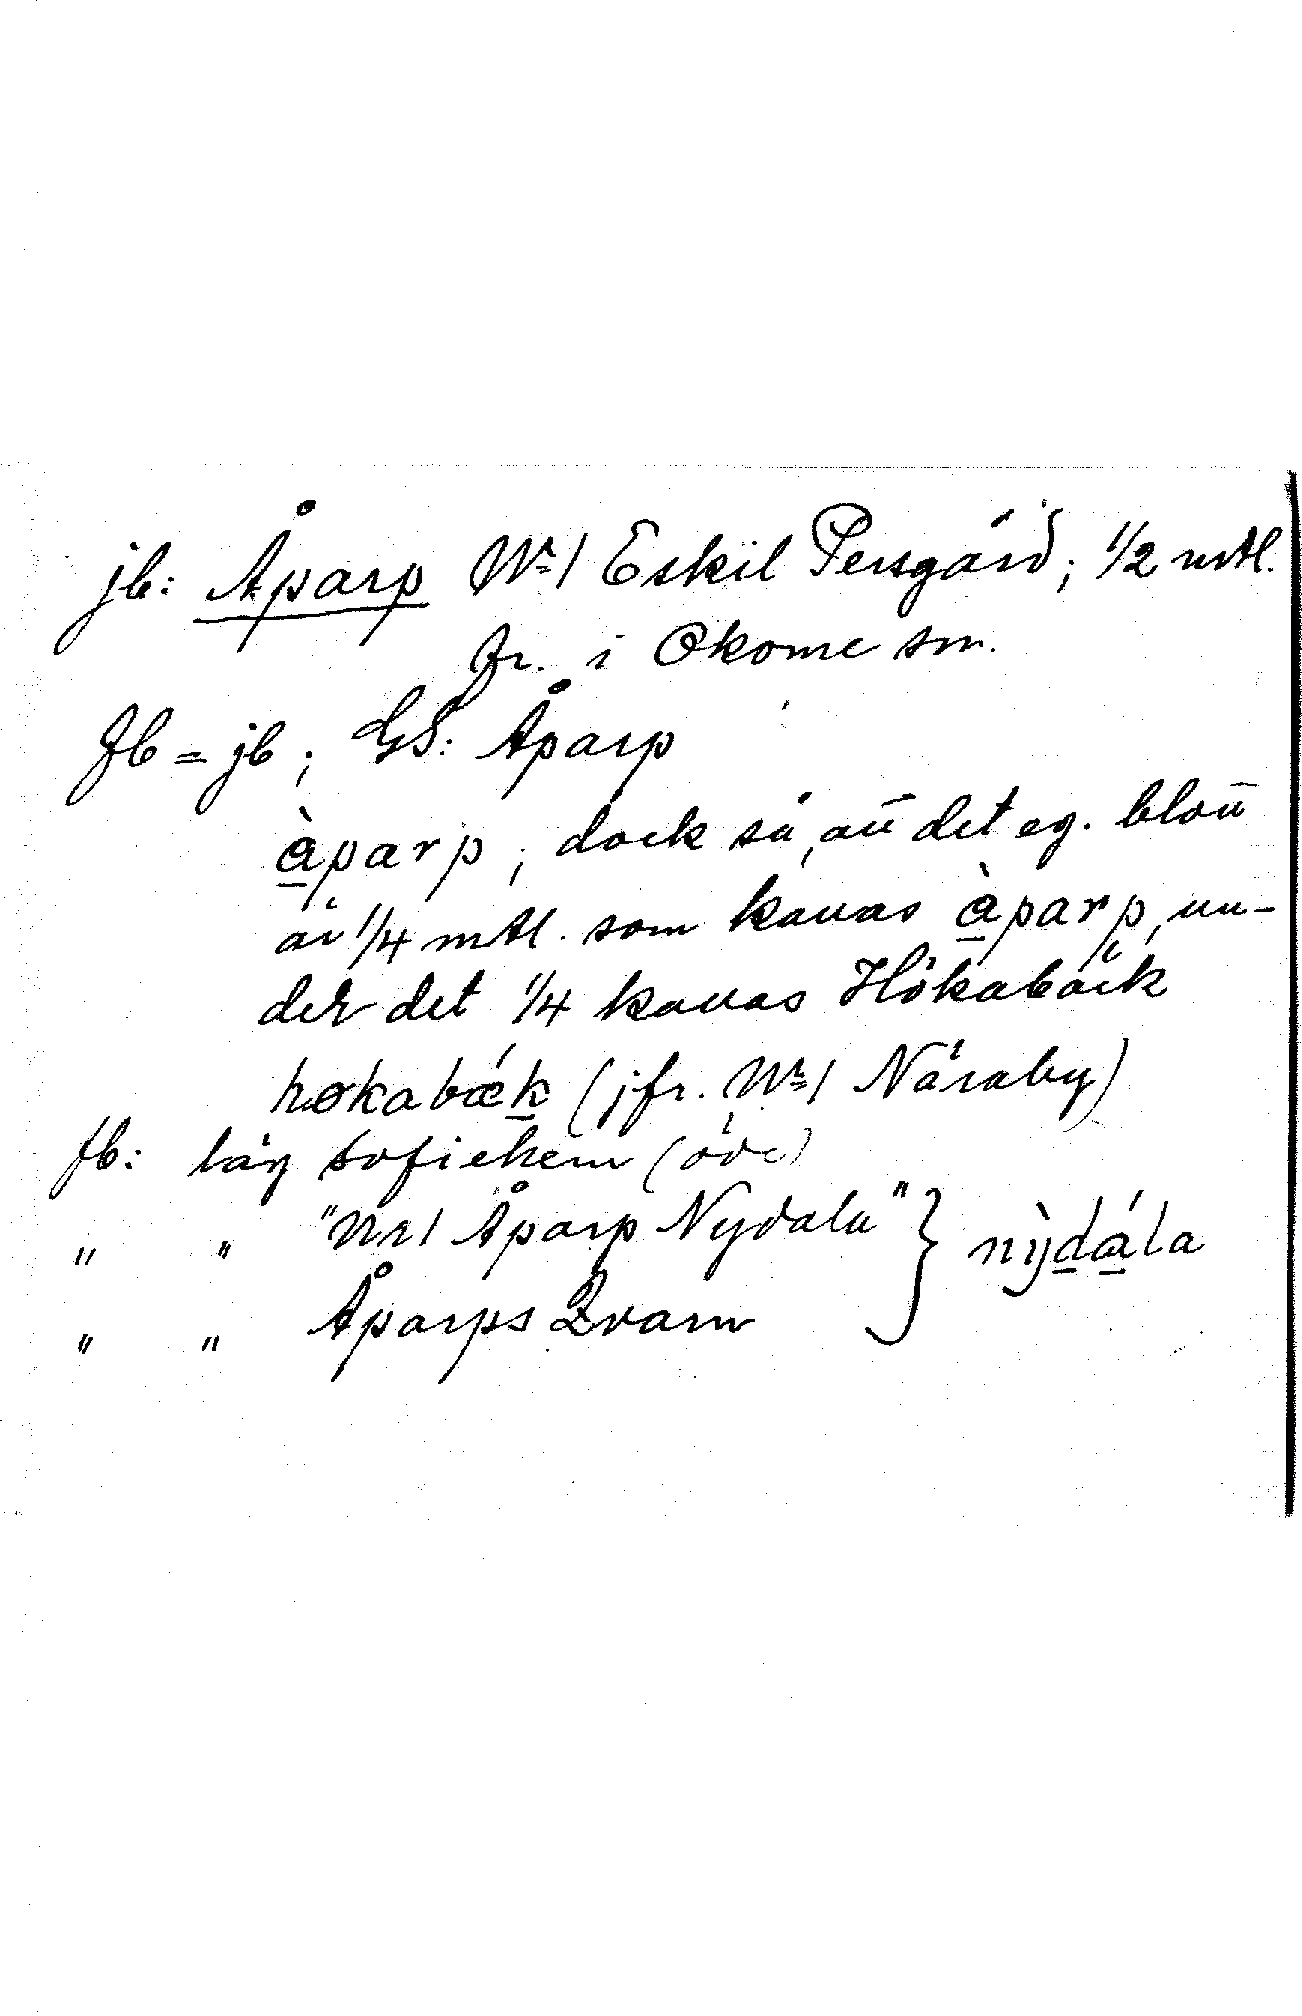 jb: Åparp No 1 Eskil Persgård; 1/2 mtl.
fr. i Okome sn.
fb = jb; GS: Åparp
àparp, dock så, att det eg. blott
är 1/4 mtl. som kallas àparp, un-
der det 1/4 kallas Hökabäck
høkabǽk (jfr. No 1 Näraby)
fb: läg Sofiehem (öde)
" " "Nr 1 Åparp Nydala" } nỳdála
" " Åparps Qvarn